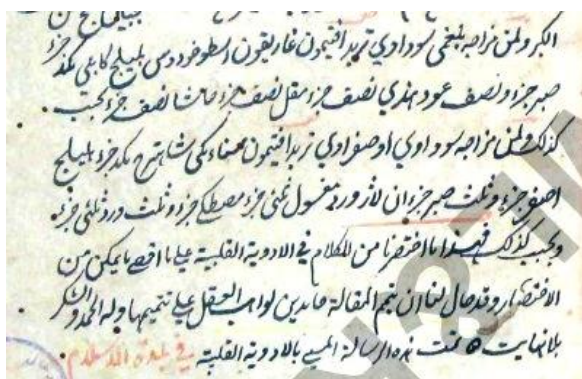 الكبر ولمن مزاجه بلغمي سوداوي تربد افتيمون غاريقون اسطوخودوس هليلج كابلي يكد جزء
صبر جزء ونصف عود هندي نصف جزء مقل نصف جزء حاشا نصف جزء يحبب
كذلك ولمن مزاجه سوداوي او صفراوي تربد افتيمون سناء مكي شاهترج يكد جزء هليلج
اصفر جزء وثلث صبر جزءان لازورد مغسول ثلثي جزء مصطكي جزء وثلث ورد ثلثي جزء
ويحبب كذلك فهذا ما اختصرنا من الكلام في الادوية القلبية على ما اقصى ما يمكن من
الاختصار وقد حان لنا ان نتم المقالة حامدين لواهب العقل على تتميمها وله الحمد والشكر
بلا نهايت تمت هذه الرسالة المسمي بالادوية القلبية في بلدة